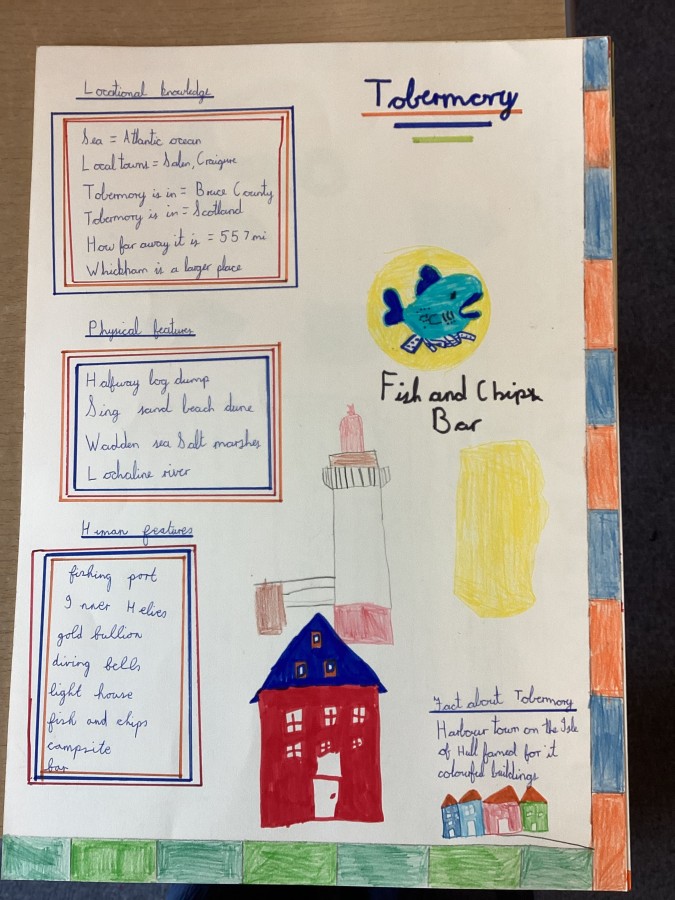 Locational knowledge
Tobermory
Sea = Atlantic ocean
Local towns = Salen, Craignure
Tobermory is in = Bruce County
Tobermory is in = Scotland
How far away it is = 557mi
Whickham is a larger place
Physical features
Halfway log dump
Sing sand beach dune
Wadden sea Salt marshes
Lochaline river
Fish and Chips
Bar
Human features
fishing port
Inner Helives
gold bullion
diving bells
light house
fish and chips
campsite
bar
Fact about Tobermory
Harbour town on the Isle
of Hull famed for it
colourful buildings